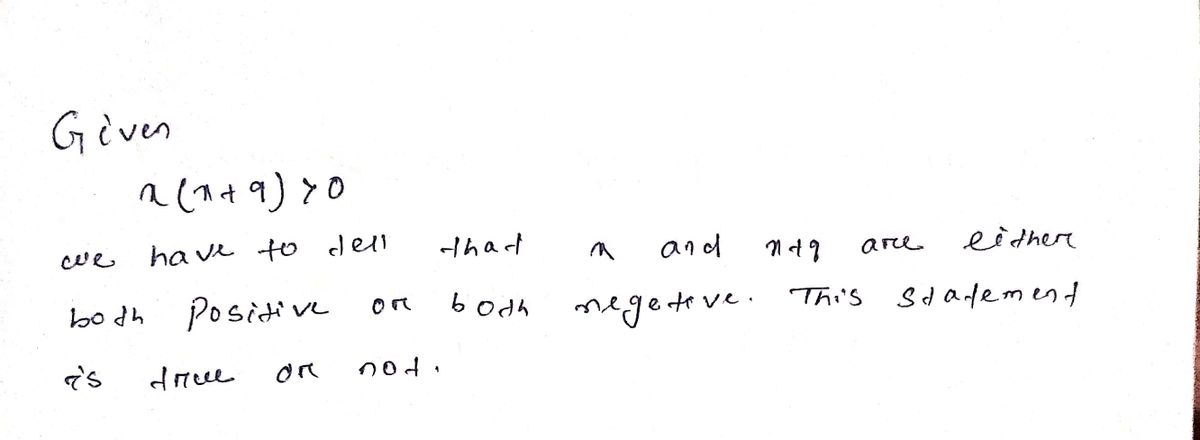 Given
x(x+9)>0
we have to tell that x and x+9 are either
both Positive or both negetive. This statement
is true or not.